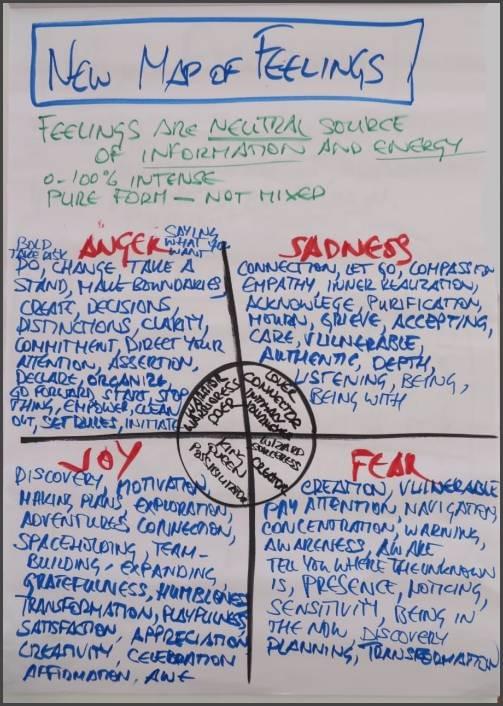 NEW MAP OF FEELINGS
FEELINGS ARE NEUTRAL SOURCE
OF INFORMATION AND ENERGY
0-100% INTENSE
PURE FORM — NOT MIXED
ANGER
BOLD
TAKE RISK
SAYING
WHAT YOU
WANT
DO, CHANGE TAKE A
STAND, MAKE BOUNDARIES,
CREATE, DECISIONS,
DISTINCTIONS, CLARITY,
COMMITMENT, DIRECT YOUR
ATTENTION, ASSERTION,
DECLARE, ORGANIZE,
GO FORWARD, START, STOP
THING, EMPOWER, CLEAN
OUT, SET RULES, INITIATE
SADNESS
CONNECTION, LET GO, COMPASSION
EMPATHY, INNER REALIZATION,
ACKNOWLEGE, PURIFICATION,
MOURN, GRIEVE, ACCEPTING,
CARE, VULNERABLE,
AUTHENTIC, DEPTH,
LISTENING, BEING,
BEING WITH
WARRIOR
WARRIORESS
DOER
LOVER
CONNECTOR
KING
QUEEN
POSSIBILITATOR
WIZARD
SORCERESS
CREATOR
JOY
DISCOVERY, MOTIVATION,
MAKING PLANS, EXPLORATION,
ADVENTURES CONNECTION,
SPACEHOLDING, TEAM-
BUILDING, EXPANDING,
GRATEFULNESS, HUMBLENESS
TRANSFORMATION, PLAYFULNESS,
SATISFACTION, APPRECIATION
CREATIVITY, CELEBRATION
AFFIRMATION, AWE
FEAR
CREATION, VULNERABLE
PAY ATTENTION, NAVIGATION,
CONCENTRATION, WARNING,
AWARENESS, AWARE
TELL YOU WHERE THE UNKNOWN
IS, PRESENCE, NOTICING,
SENSITIVITY, BEING IN
THE NOW, DISCOVERY
PLANNING, TRANSFORMATION